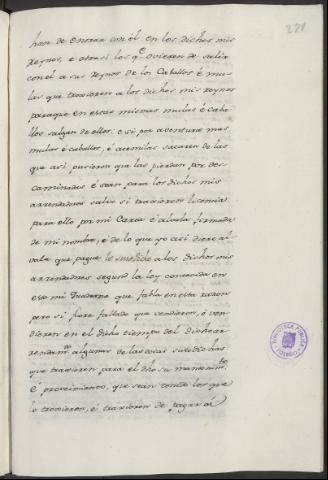 231
han de entrar con él en los dichos mis
Reynos, é otrosi los qe ovieren de salir
con él a sus Reynos de los Caballos é mu-
las que traxieren a los dichos mis reynos
paraque en estas mismas mulas é caba-
llos salgan de ellos. e si por aventura mas
mulas é caballos, é acemilas sacaren de las
que asi pusieren que las pierdan por des-
caminadas é sean para los dichos mis
arrendadores salvo si traxieren licencia
para ello por mi Carta é alvala firmada
de mi nombre, é de lo que yo asi diere al-
vala que pague lo susodicho a los dichos mis
arrendadores segund la ley contenida en
este mi Quaderno que fabla en esta razon
pero si fuere fallado que vendieron, ó ven-
dieren en el dicho tiempo del dicho ar-
rendamto algunas de las cosas susodichas
que traxieren para el dho su mantenimto
é proveimiento, que sean tenudos los que
lo troxieren, é traxieren de pagar al
BIBLIOTECA PUBLICA
TOLEDO